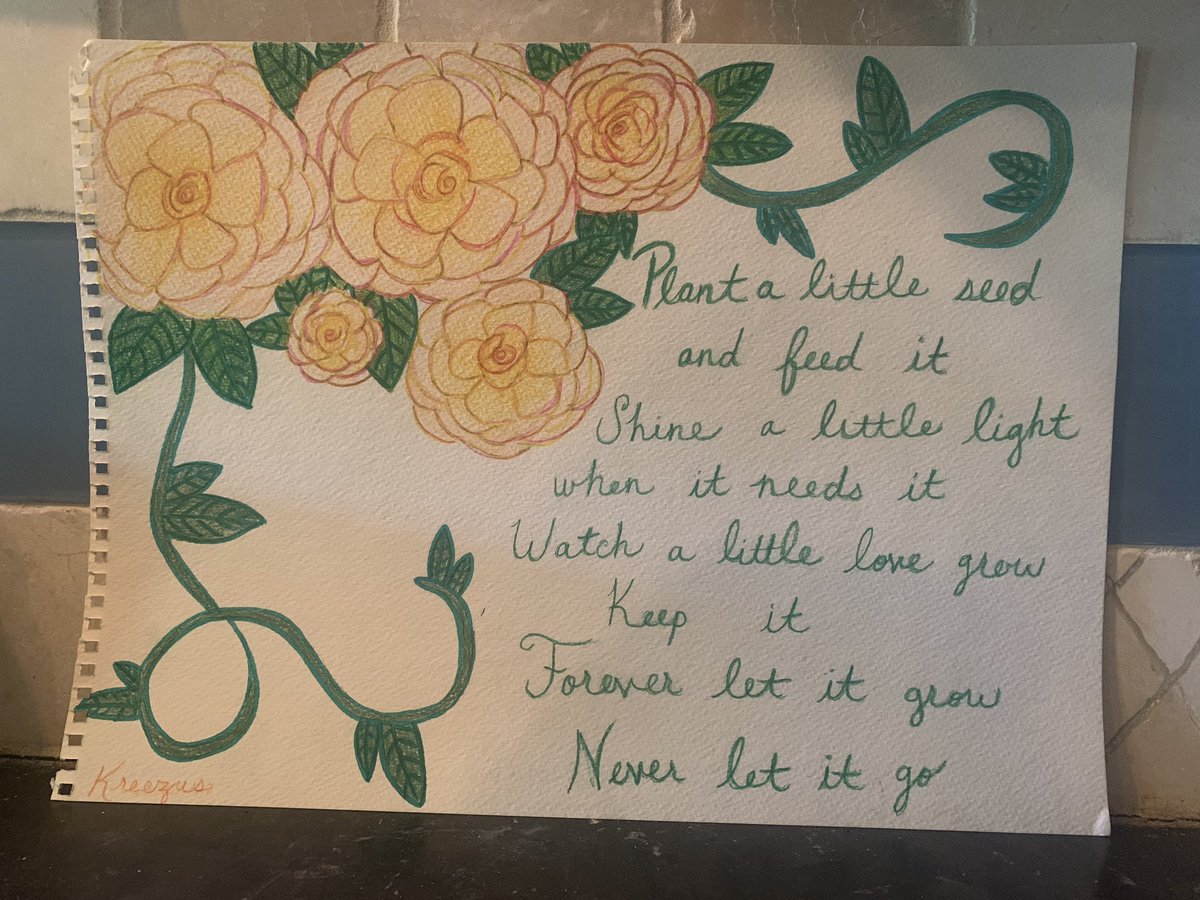 Plant a little seed
and feed it
Shine a little light
when it needs it
Watch a little love grow
Keep it
Forever let it grow
Never let it go
Kreezus